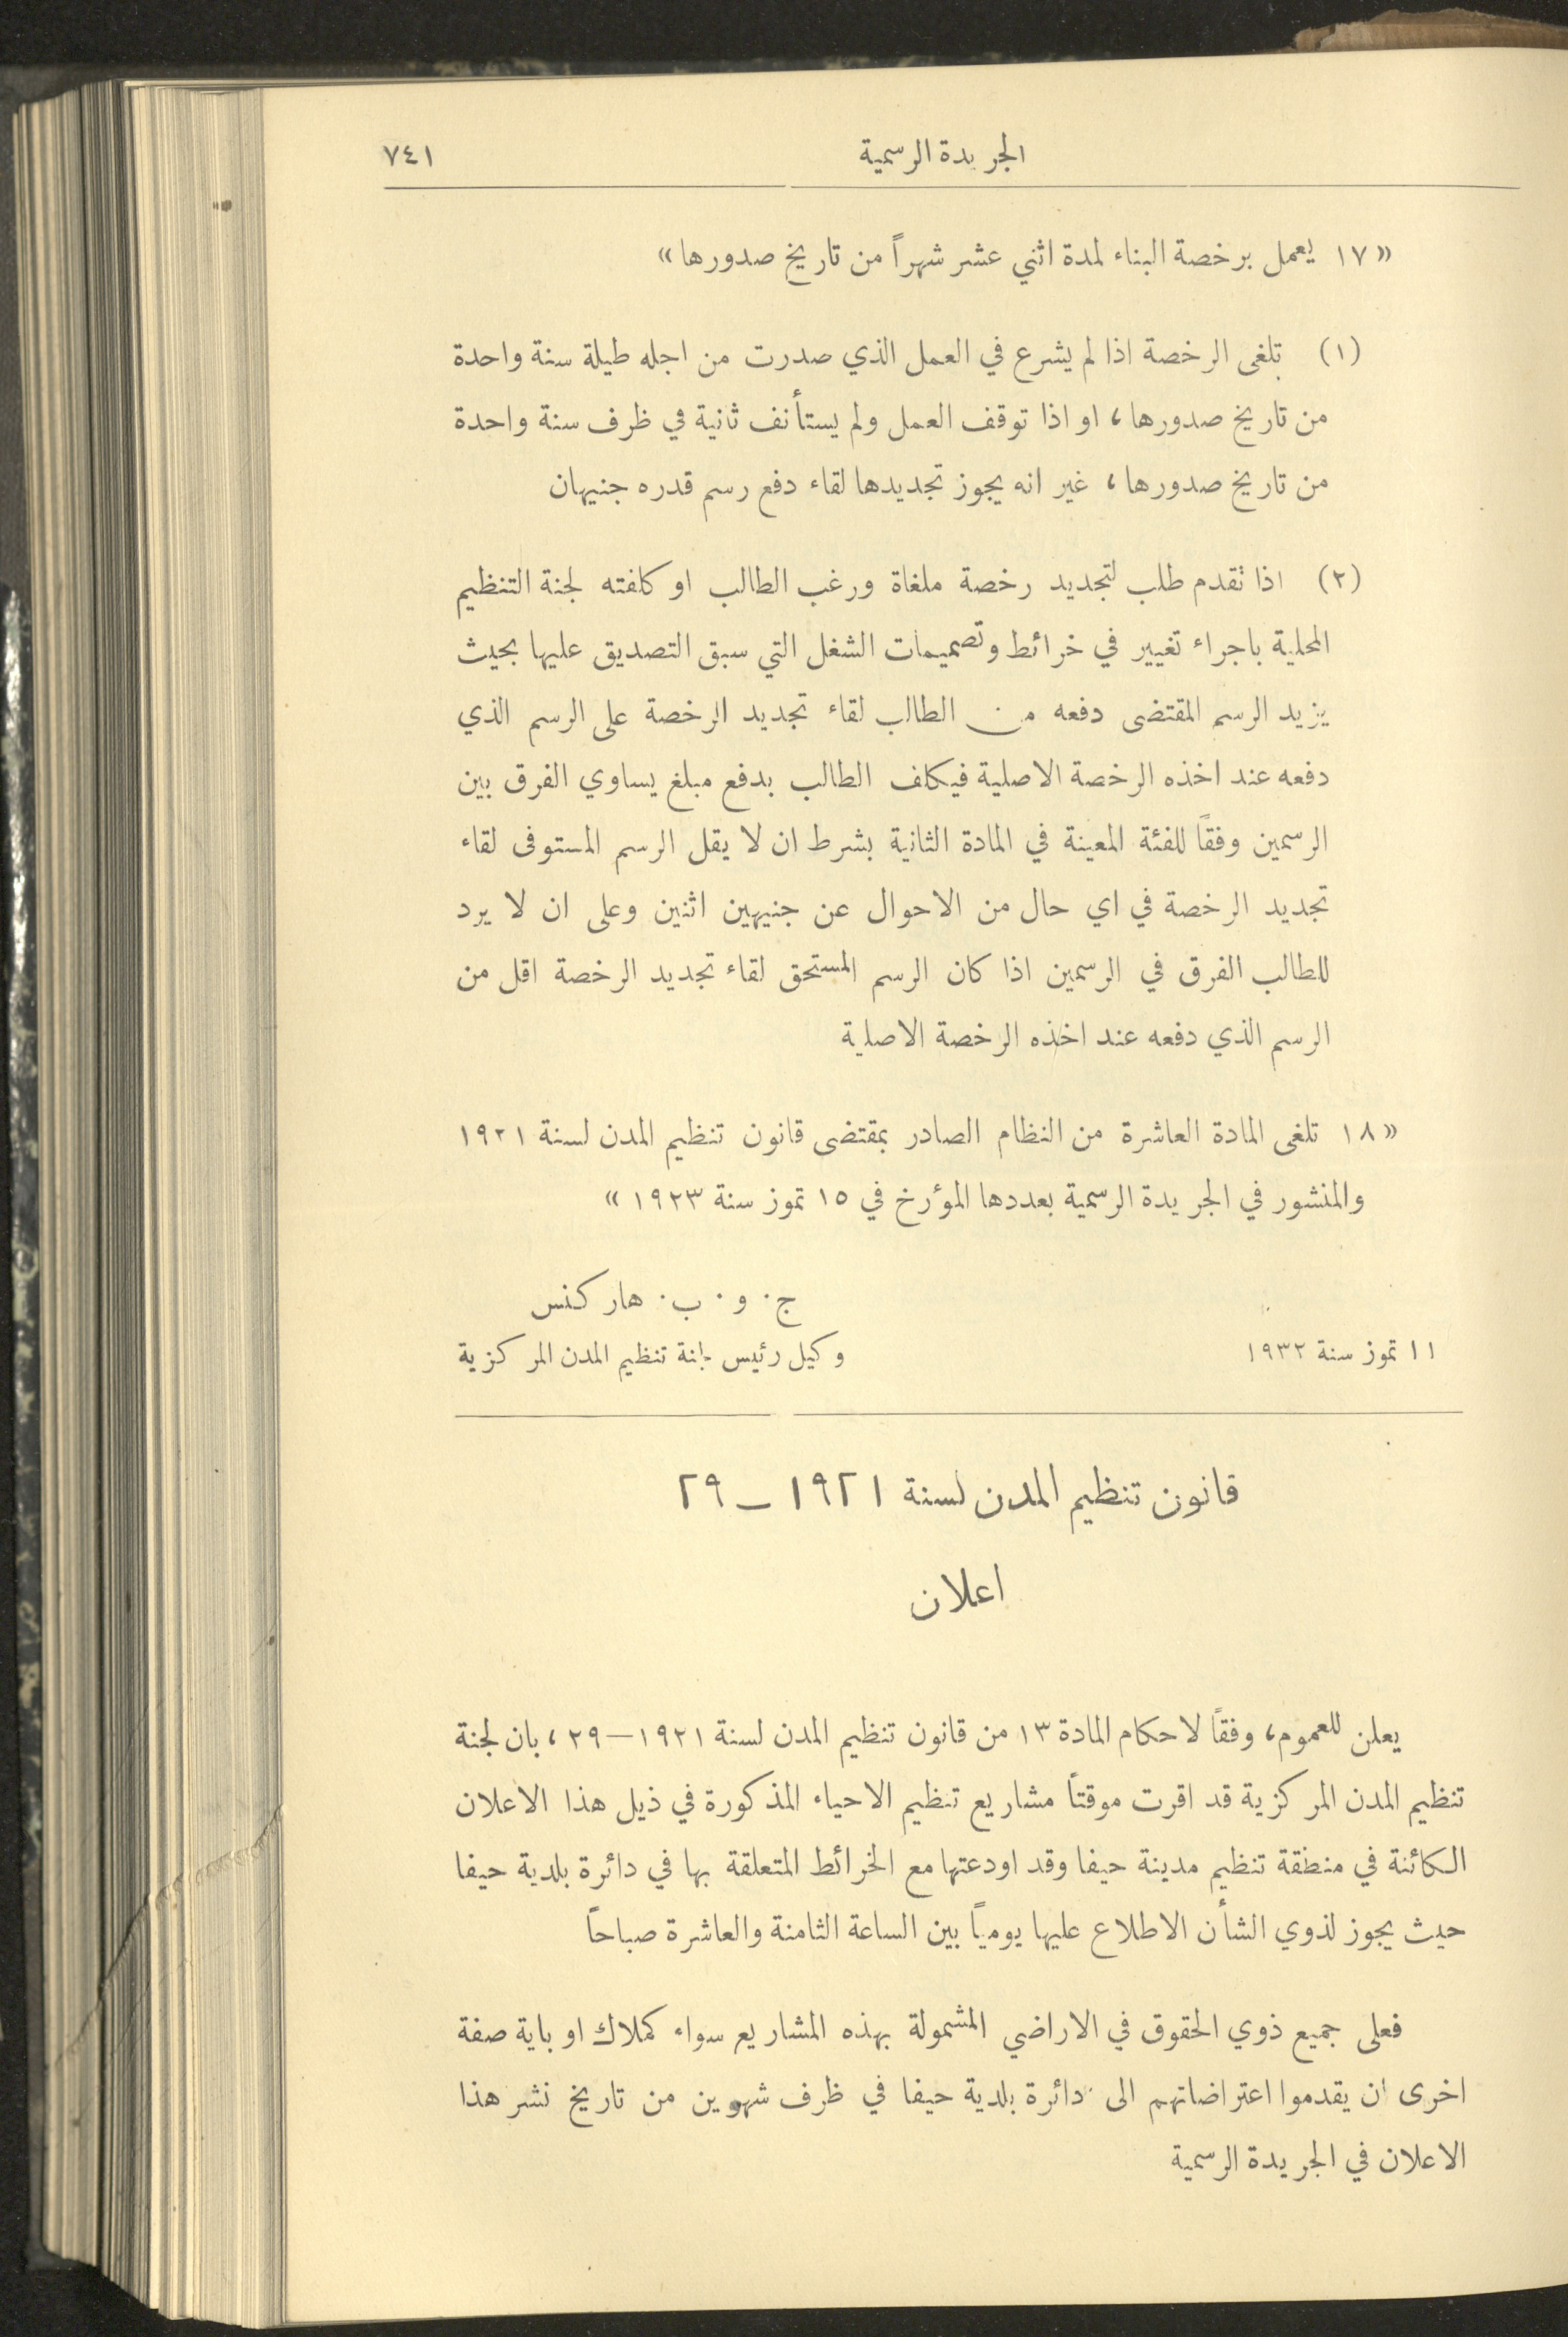 الجريدة الرسمية ٧٤١
«١٧ يعمل برخصة البناء لمدة اثني عشر شهراً من تاريخ صدورها»
(١) تلغى الرخصة اذا لم يشرع في العمل الذي صدرت من اجله طيلة سنة واحدة
من تاريخ صدورها، او اذا توقف العمل ولم يستأنف ثانية في ظرف سنة واحدة
من تاريخ صدورها، غير انه يجوز تجديدها لقاء دفع رسم قدره جنيهان
(٢) اذا تقدم طلب لتجديد رخصة ملغاة ورغب الطالب او كلفته لجنة التنظيم
المحلية باجراء تغيير في خرائط وتصميمات الشغل التي سبق التصديق عليها بحيث
يزيد الرسم المقتضى دفعه من الطالب لقاء تجديد الرخصة على الرسم الذي
دفعه عند اخذه الرخصة الاصلية فيكلف الطالب بدفع مبلغ يساوي الفرق بين
الرسمين وفقاً للفئة المعينة في المادة الثانية بشرط ان لا يقل الرسم المستوفى لقاء
تجديد الرخصة في اي حال من الاحوال عن جنيهين اثنين وعلى ان لا يرد
للطالب الفرق في الرسمين اذا كان الرسم المستحق لقاء تجديد الرخصة اقل من
الرسم الذي دفعه عند اخذه الرخصة الاصلية
«١٨ تلغى المادة العاشرة من النظام الصادر بمقتضى قانون تنظيم المدن لسنة ١٩٢١
والمنشور في الجريدة الرسمية بعددها المؤرخ في ١٥ تموز سنة ١٩٢٣»
ج. و. ب. هاركنس
١١ تموز سنة ١٩٣٢ وكيل رئيس لجنة تنظيم المدن المركزية
قانون تنظيم المدن لسنة ١٩٢١ – ٢٩
اعلان
يعلن للعموم، وفقاً لاحكام المادة ١٣ من قانون تنظيم المدن لسنة ١٩٢١–٢٩، بان لجنة
تنظيم المدن المركزية قد اقرت موقتاً مشاريع تنظيم الاحياء المذكورة في ذيل هذا الاعلان
الكائنة في منطقة تنظيم مدينة حيفا وقد اودعتها مع الخرائط المتعلقة بها في دائرة بلدية حيفا
حيث يجوز لذوي الشأن الاطلاع عليها يومياً بين الساعة الثامنة والعاشرة صباحاً
فعلى جميع ذوي الحقوق في الاراضي المشمولة بهذه المشاريع سواء كملاك او باية صفة
اخرى ان يقدموا اعتراضاتهم الى دائرة بلدية حيفا في ظرف شهرين من تاريخ نشر هذا
الاعلان في الجريدة الرسمية